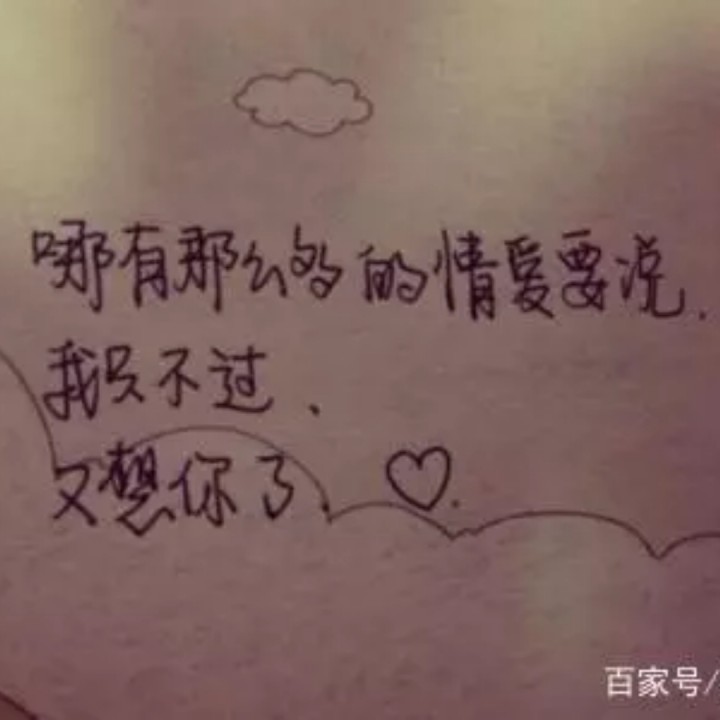 哪有那么多的情爱要说.
我只不过、
又想你了 ♡.
百家号/